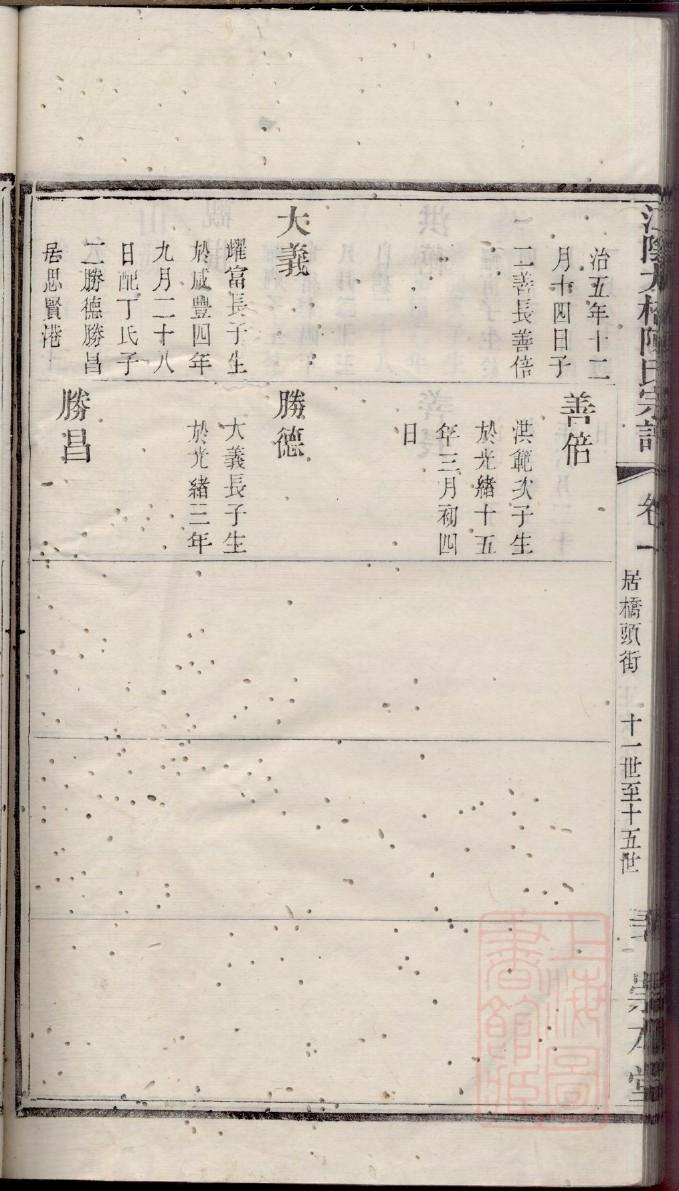 治五年十二
月十四日子
二善長善倍
大義
耀富長子生
於咸豐四年
九月二十八
日配丁氏子
二勝德勝昌
居思賢港
善倍
洪範次子生
於光緒十五
年三月初四
日
勝德
大義長子生
於光緒三年
勝昌
江陰大橋陳氏宗譜
卷一
居橋頭街
十一世至十五世
崇本堂
上海圖書館藏